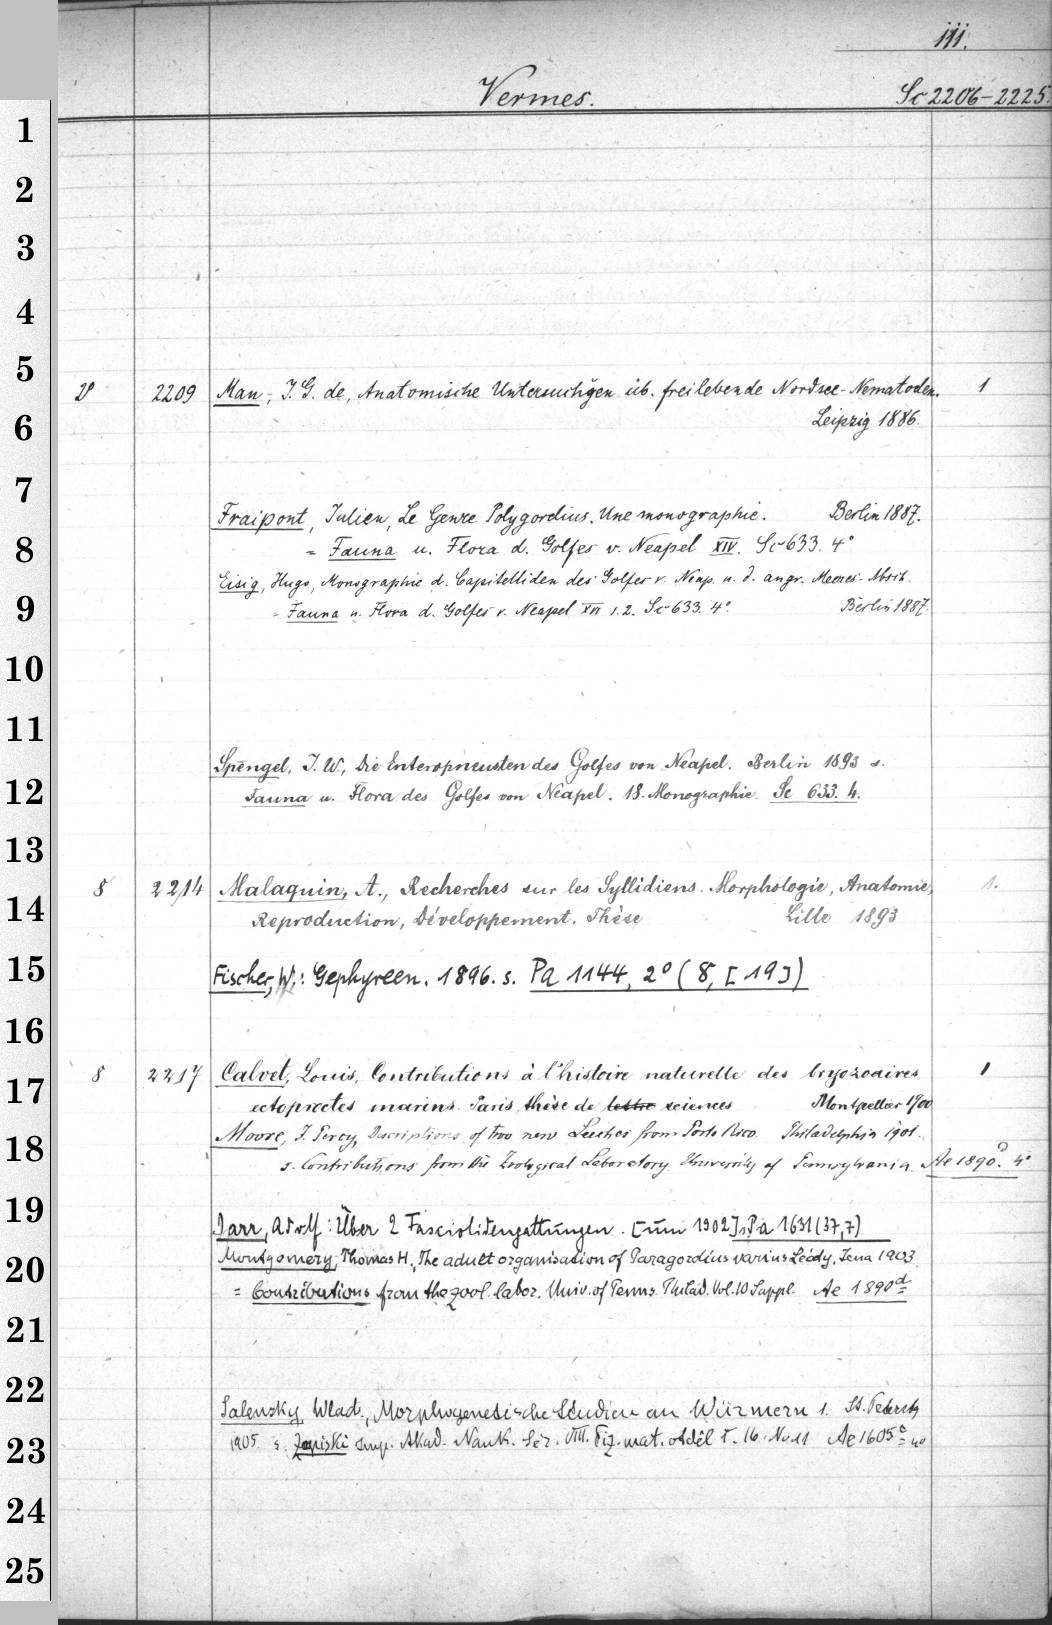 iii.
Vermes. Sc 2206-2225.
1
2
3
4
5
2209 Man, J. G. de, Anatomische Untersuchgen üb. freilebende Nordsee-Nematoden. 1
6 Leipzig 1886.
7
Fraipont, Julien, Le Genre Polygordius. Une monographie. Berlin 1887.
8 = Fauna u. Flora d. Golfes v. Neapel XIV. Sc 633. 4°
Eisig, Hugo, Monographie d. Capitelliden des Golfes v. Neap. u. d. angr. Meeres-Absch.
9 = Fauna u. Flora d. Golfes v. Neapel XVI 1.2. Sc 633. 4°. Berlin 1887.
10
11
Spengel, J. W., Die Enteropneusten des Golfes von Neapel. Berlin 1893 s.
12 Fauna u. Flora des Golfes von Neapel. 18. Monographie. Sc 633. 4.
13
8 2214 Malaquin, A., Recherches sur les Syllidiens. Morphologie, Anatomie, 1.
14 Reproduction, Développement. Thèse Lille 1893
15 Fischer, W.: Gephyreen. 1896. s. Pa 1144, 2° (8, [19])
16
8 2217 Calvet, Louis, Contributions à l'histoire naturelle des bryozoaires 1
17 ectoproctes marins. Paris, thèse de lettre sciences Montpellier 1900
Moore, J. Percy, Descriptions of two new Leeches from Porto Rico. Philadelphia 1901.
18 s. Contributions from the Zoological Laboratory University of Pennsylvania. Ae 1890d. 4°
19 Darr, Adolf: Über 2 Fasciolidengattungen. [um 1902] s. Pa 1631 (37,7)
20 Montgomery, Thomas H., The adult organisation of Paragordius varius Leidy, Jena 1903
= Contributions from the zool. labor. Univ. of Penns. Philad. Vol. 10 Suppl. Ae 1890d
21
22 Salensky, Wlad., Morphogenetische Studien an Würmern 1. St. Petersb
23 1905 s. Zapiski Imp. Akad. Nauk. Sér. VIII. Fiz.-mat. otdêl T. 16. No 11 Ae 1605a 4°
24
25